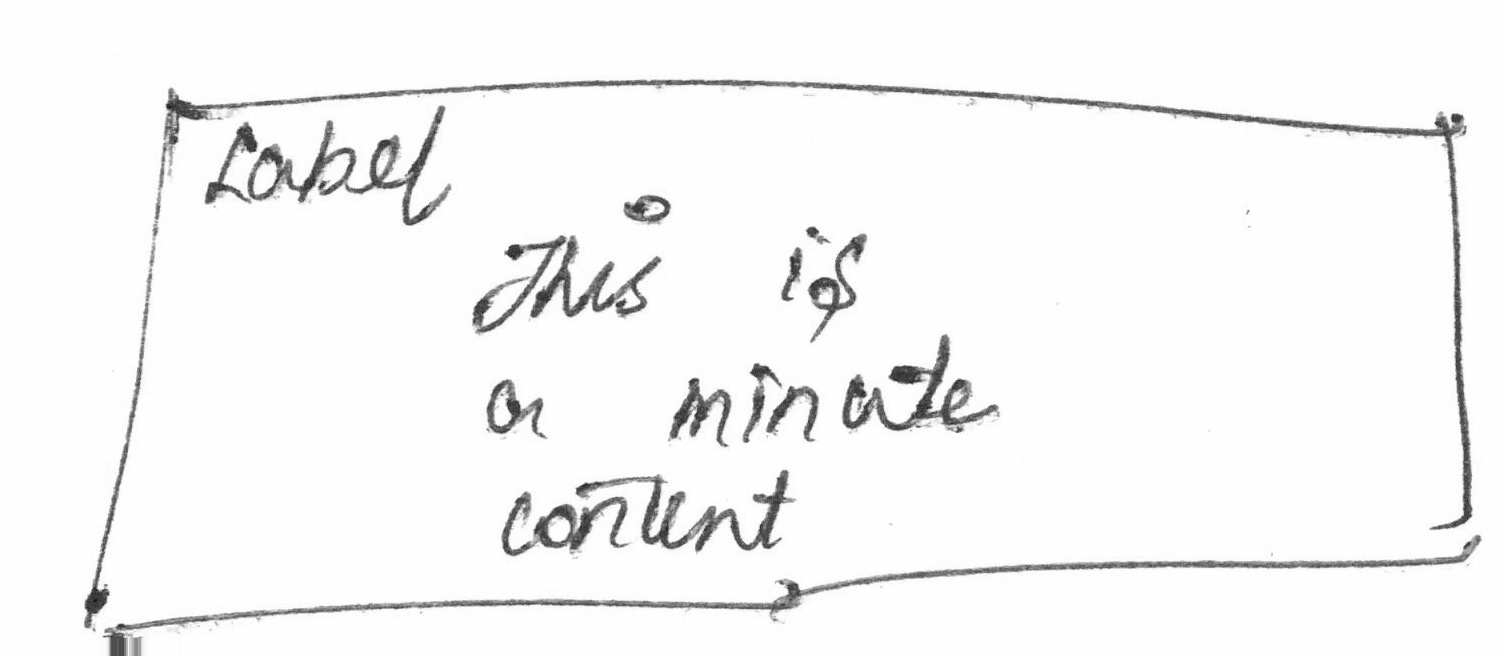 Label
This is
a minute
content